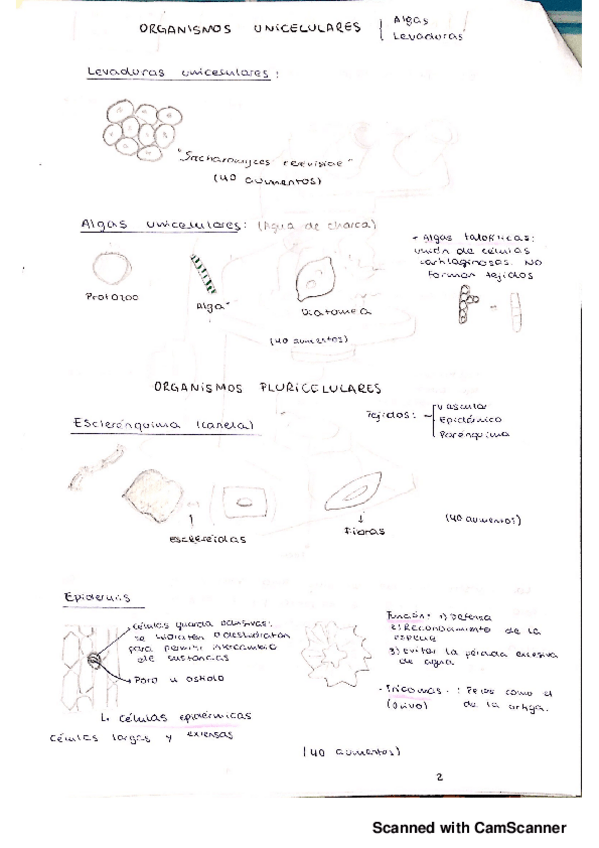 ORGANISMOS UNICELULARES
Algas
Levaduras
Levaduras unicelulares:
"Sacharomyces cerevisiae"
(40 aumentos)
Algas unicelulares: (Agua de charca)
Protozoo
Alga
Diatomea
(40 aumentos)
- Algas talofíticas:
unión de células
cartilaginosas. NO
forman tejidos
ORGANISMOS PLURICELULARES
Esclerénquima (canela)
Tejidos:
Vascular
Epidérmico
Parénquima
esclereidas
Fibras
(40 aumentos)
Epidermis
células guarda oclusivas:
se hidratan o deshidratan
para permitir intercambio
de sustancias
Poro u ostiolo
L. células epidérmicas
células largas y extensas
Función: 1) Defensa
2) Reconocimiento de la
especie
3) evitar la pérdida excesiva
de agua
- Tricomas: Pelos como el
(olivo) de la ortiga.
(40 aumentos)
2
Scanned with CamScanner